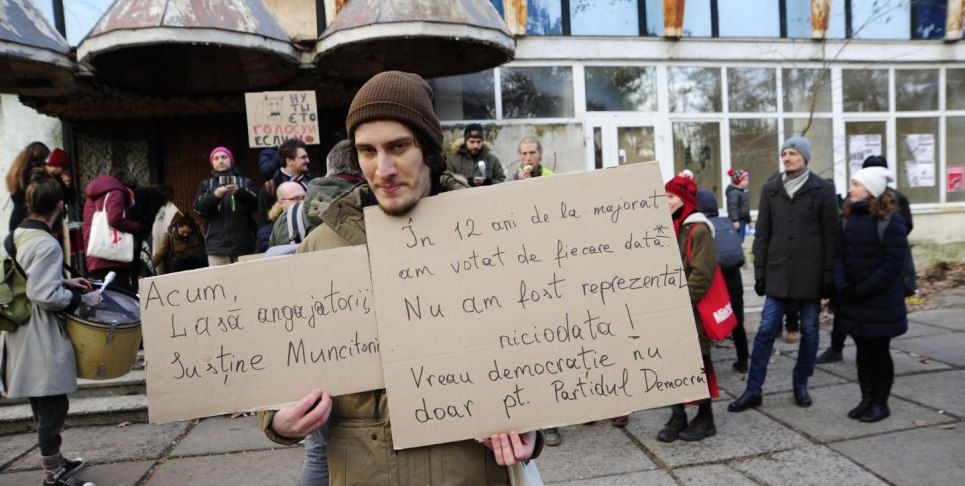 НУ ТЫ
ЄТО
ГОЛОСУЙ
ЕСЛИ
Acum,
Lasă angajatorii,
Susține Muncitorii
În 12 ani de la majorat
am votat de fiecare dată.*
Nu am fost reprezentat
niciodata!
Vreau democrație nu
doar pt. Partidul Democrat